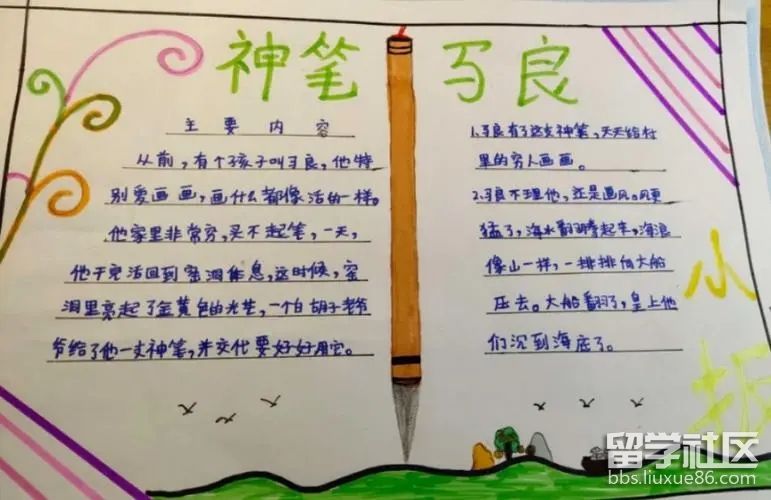 神笔 马良
主要内容
从前,有个孩子叫马良,他特
别爱画画,画什么都像活的一样。
他家里非常穷,买不起笔,一天,
他干完活回到窑洞休息,这时候,窑
洞里亮起了金黄色的光芒,一个白胡子老爷
爷给了他一支神笔,并交代要好好用它。
1.马良有了这支神笔,天天给村
里的穷人画画。
2.马良不理他,还是画风。风更
猛了,海水翻腾起来,海浪
像山一样,一排排向大船
压去。大船翻了,皇上他
们沉到海底了。
小报
留学社区
bbs.liuxue86.com